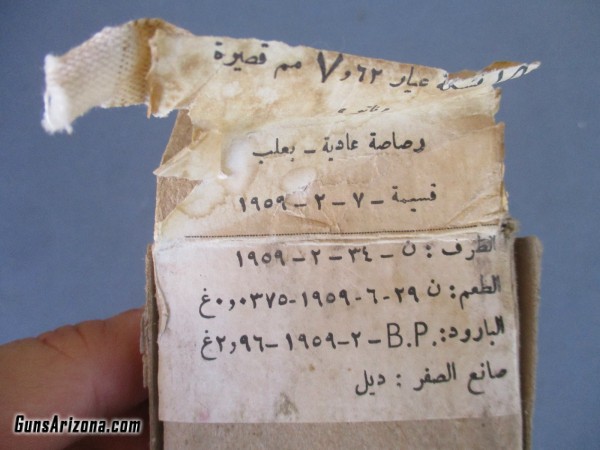 قسيمة عيار ٧٫٦٢ مم قصيرة
رصاصة عادية - بعلب
قسيمة - ٧ - ٢ - ١٩٥٩
الظرف : ن - ٣٤ - ٢ - ١٩٥٩
الطعم : ن ٢٩ - ٦ - ١٩٥٩ - ٠٫٠٣٧٥ غ
البارود : .B.P - ٢ - ١٩٥٩ - ٢٫٩٦ غ
صانع الصفر : ديل
GunsArizona.com